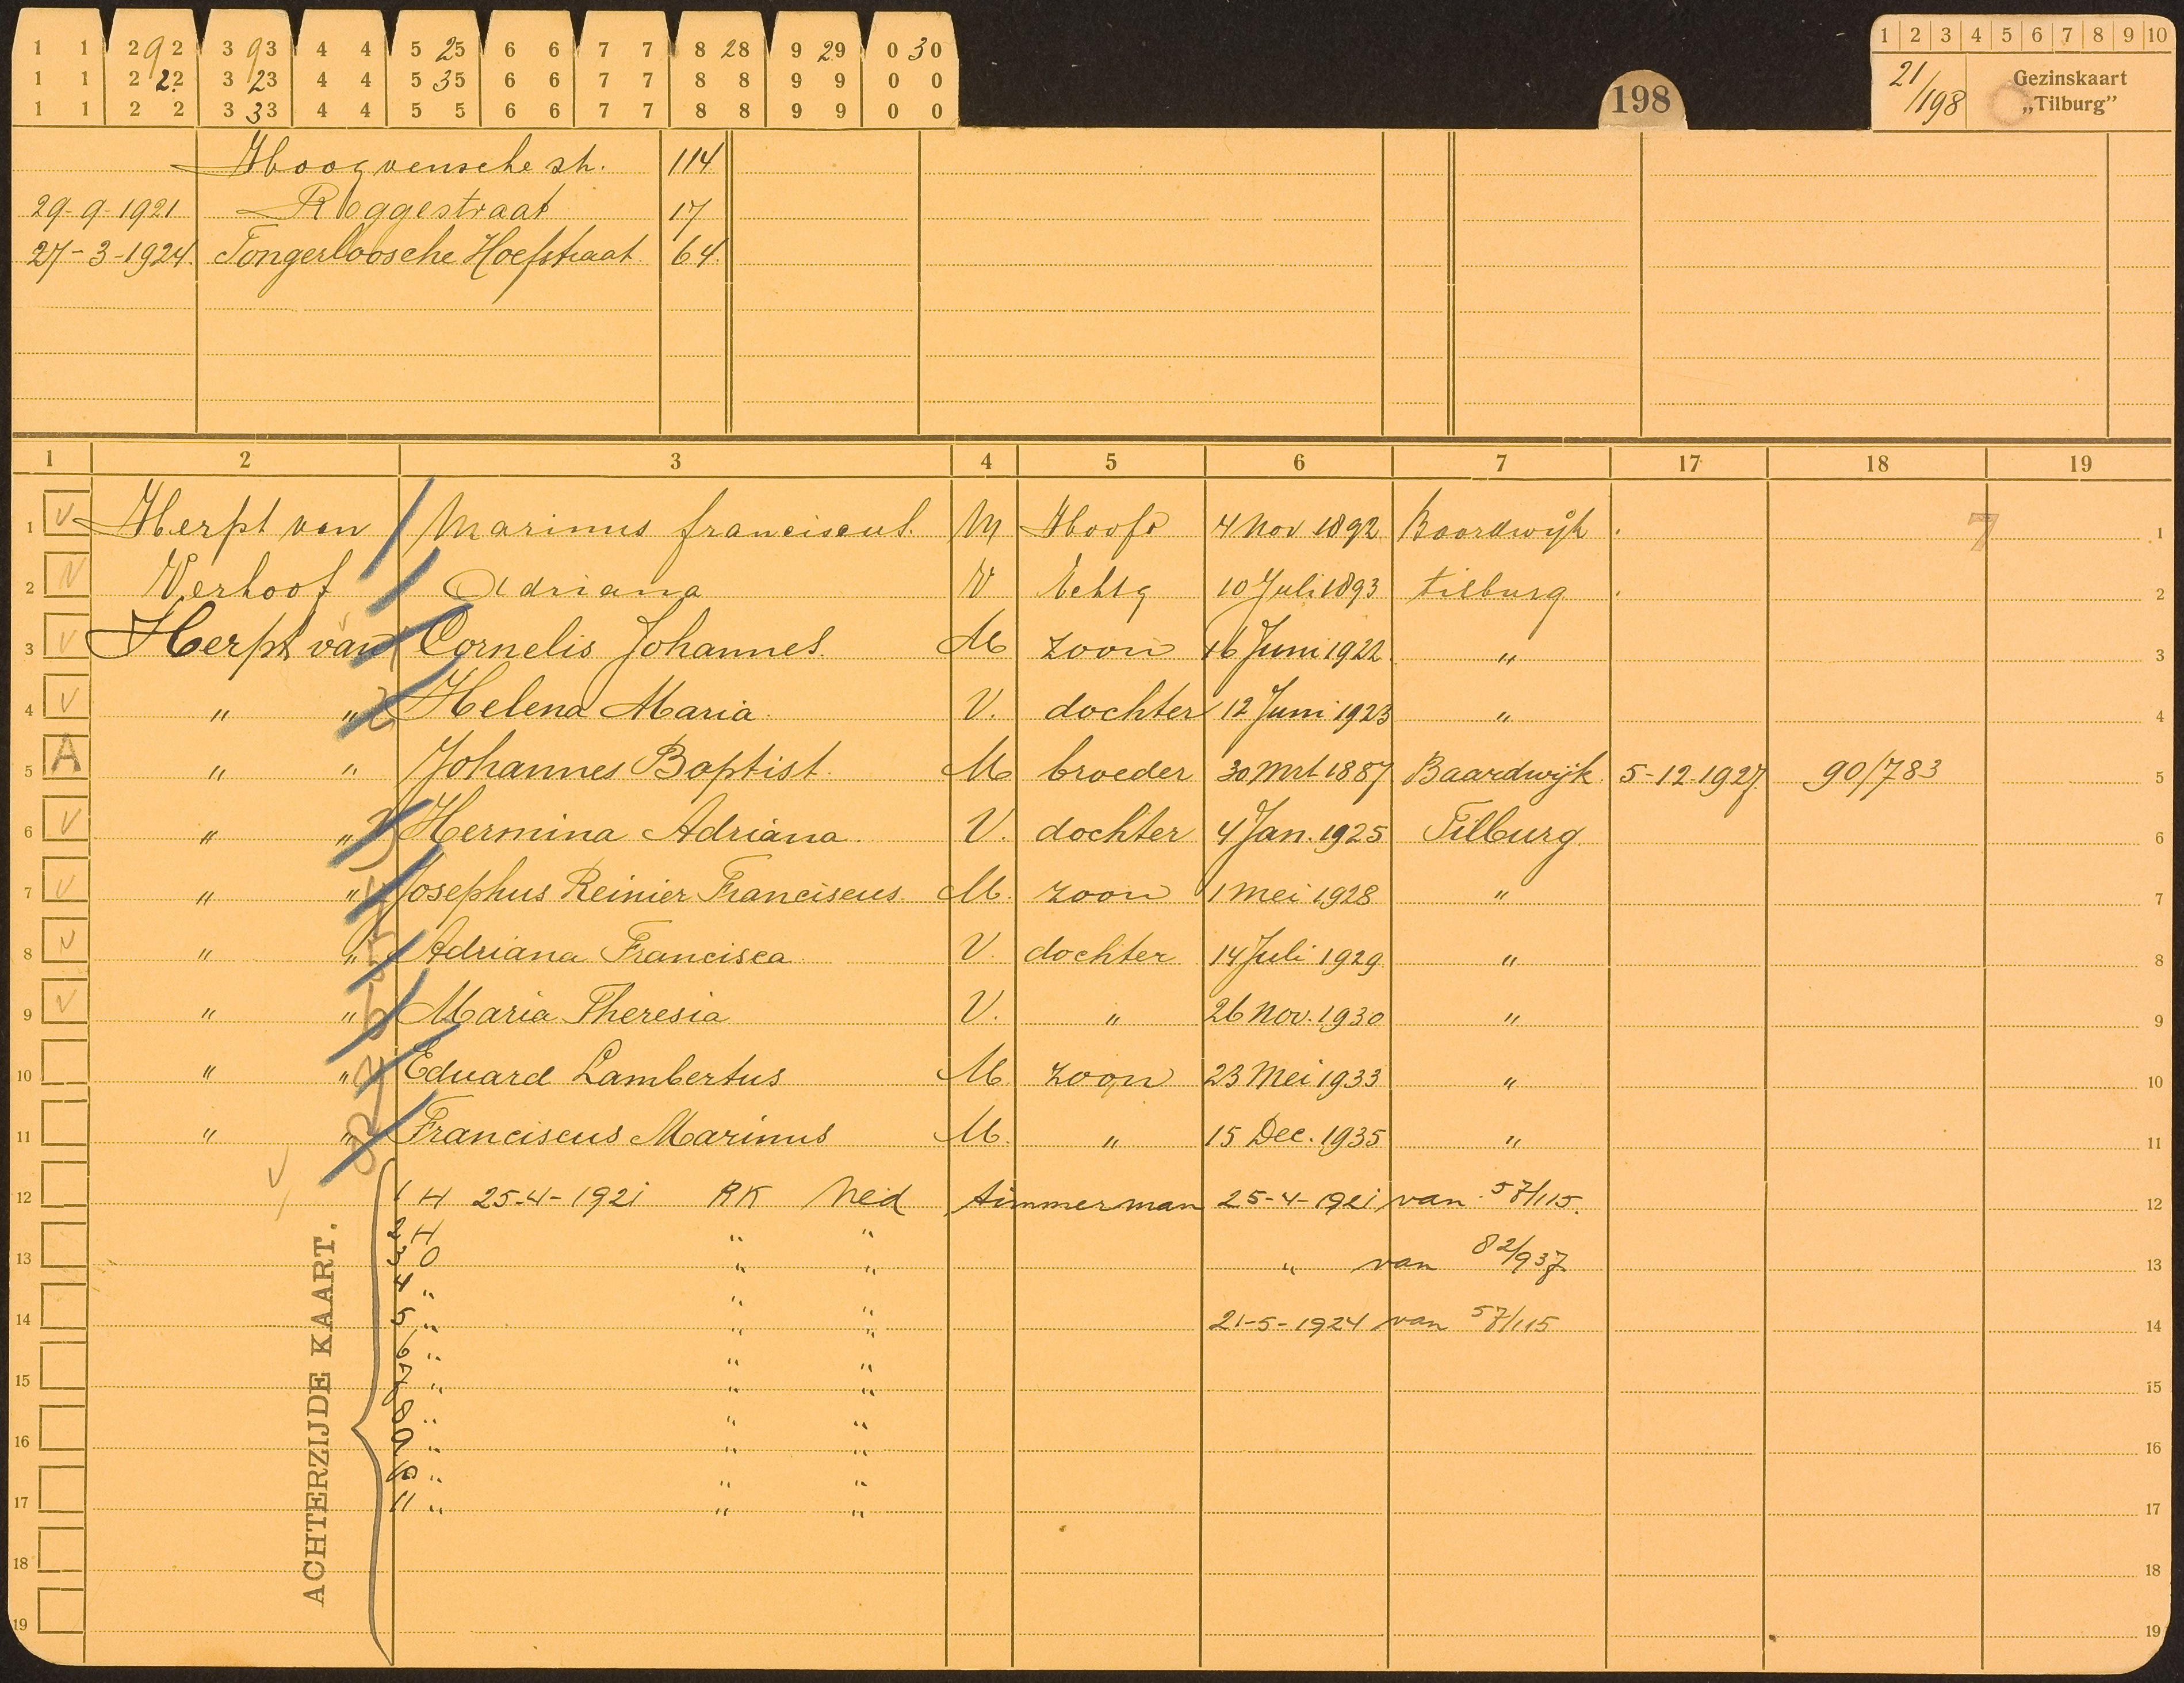 1 1 2 9 2 3 9 3 4 4 5 25 6 6 7 7 8 28 9 29 0 30
1 1 2 22 3 23 4 4 5 35 6 6 7 7 8 8 9 9 0 0
1 1 2 2 3 33 4 4 5 5 6 6 7 7 8 8 9 9 0 0
198
1 2 3 4 5 6 7 8 9 10
21/198 Gezinskaart
„Tilburg”
Hoogvensche str. 114
29-9-1921 Roggestraat 17
27-3-1924 Tongerloosche Hoefstraat 64
1 2 3 4 5 6 7 17 18 19
1 V Herpt van Marinus franciscus. M Hoofd 4 Nov 1892 Baardwijk 7 1
2 V Verhoof Adriana V Echtg 10 Juli 1893 tilburg 2
3 V Herpt van 1 Cornelis Johannes. M zoon 16 Juni 1922 " 3
4 V " " 2 Helena Maria. V. dochter 12 Juni 1923 " 4
5 A " " Johannes Baptist. M broeder 30 Mrt 1887 Baardwijk 5-12-1927 90/783 5
6 V " " 3 Hermina Adriana. V. dochter 4 Jan. 1925 Tilburg 6
7 V " " 4 Josephus Reinier Franciscus. M. zoon 1 Mei 1928 " 7
8 V " " 5 Adriana Francisca V. dochter 14 Juli 1929 " 8
9 V " " 6 Maria Theresia V. " 26 Nov. 1930 " 9
10 " " 7 Eduard Lambertus M. zoon 23 Mei 1933 " 10
11 " " 8 Franciscus Marinus M. " 15 Dec. 1935 " 11
12 1 H 25-4-1921 RK Ned timmerman 25-4-1921 van 57/115. 12
2 H " "
13 3 O " " " van 82/937 13
4 " " "
14 5 " " " 21-5-1924 van 57/115 14
6 " " "
15 7 " " " 15
8 " " "
16 9 " " " 16
10 " " "
17 11 " " " 17
18 18
19 19
ACHTERZIJDE KAART.